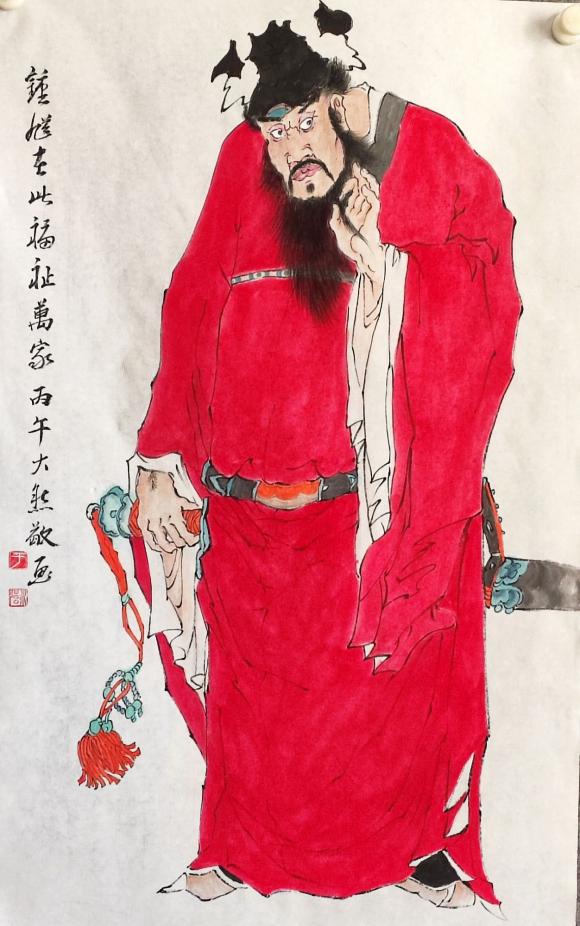 鍾馗在此福祉萬家丙午大熊敬画